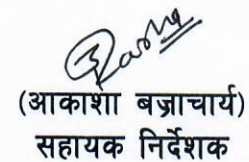 (आकाशा बज्राचार्य)
सहायक निर्देशक